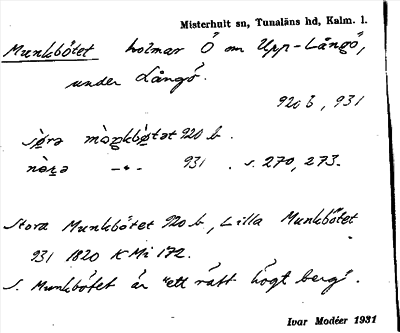 Misterhult sn, Tunaläns hd, Kalm. l.
Munkbötet holmar Ö om Upp-Långö,
under Långö.
920 b, 931
920 b.
931. s. 270, 273.
Stora Munkbötet 920 b, Lilla Munkbötet
931 1820 KMi 172.
S. Munkbötet är "ett rätt högt berg".
Ivar Modéer 1931